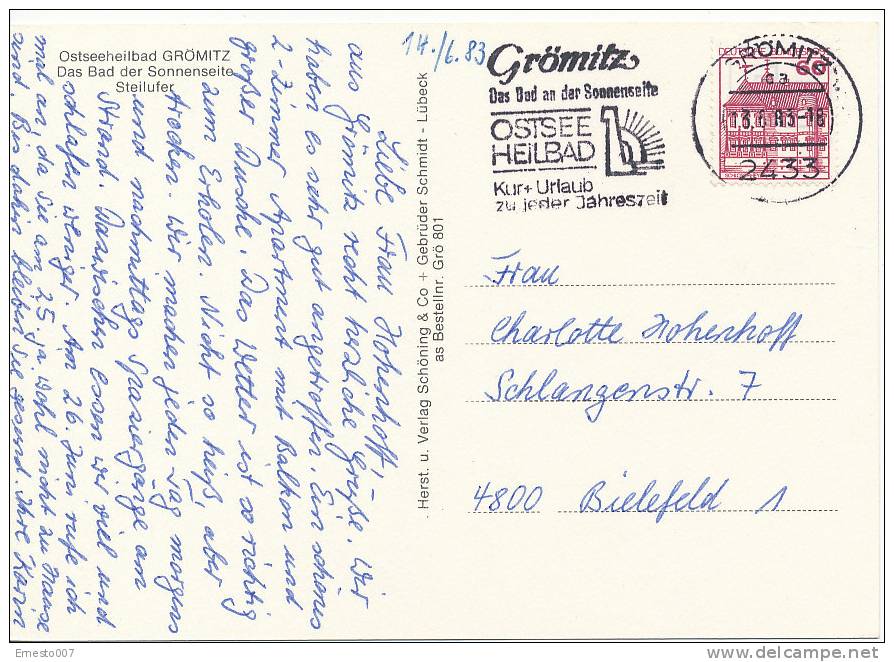 Ostseeheilbad GRÖMITZ
Das Bad der Sonnenseite
Steilufer
14./6.83
Liebe Frau Hohenhoff, -
aus Grömitz recht herzliche Grüße. Wir
haben es sehr gut angetroffen. Ein schönes
2-Zimmer Apartment mit Balkon und
großer Dusche. Das Wetter ist so richtig
zum Erholen. Nicht so heiß, aber
trocken. Wir machen jeden Tag morgens
und nachmittags Spaziergänge am
Strand. Dazwischen essen wir viel und
schlafen weniger. Am 26. Juni rufe ich
mal an, da Sie am 25. ja wohl nicht zu Hause
sind. Bis dahin bleiben Sie gesund. Ihre Karin
Herst. u. Verlag Schöning & Co + Gebrüder Schmidt - Lübeck
as Bestellnr. Grö 801
Grömitz
Das Bad an der Sonnenseite
OSTSEE
HEILBAD
Kur + Urlaub
zu jeder Jahreszeit
DEUTSCHE BUNDESPOST
60
GRÖMITZ
ca
13.6.83-18
2433
Frau
Charlotte Hohenhoff
Schlangenstr. 7
4800 Bielefeld 1
Ernesto007
www.delcampe.net